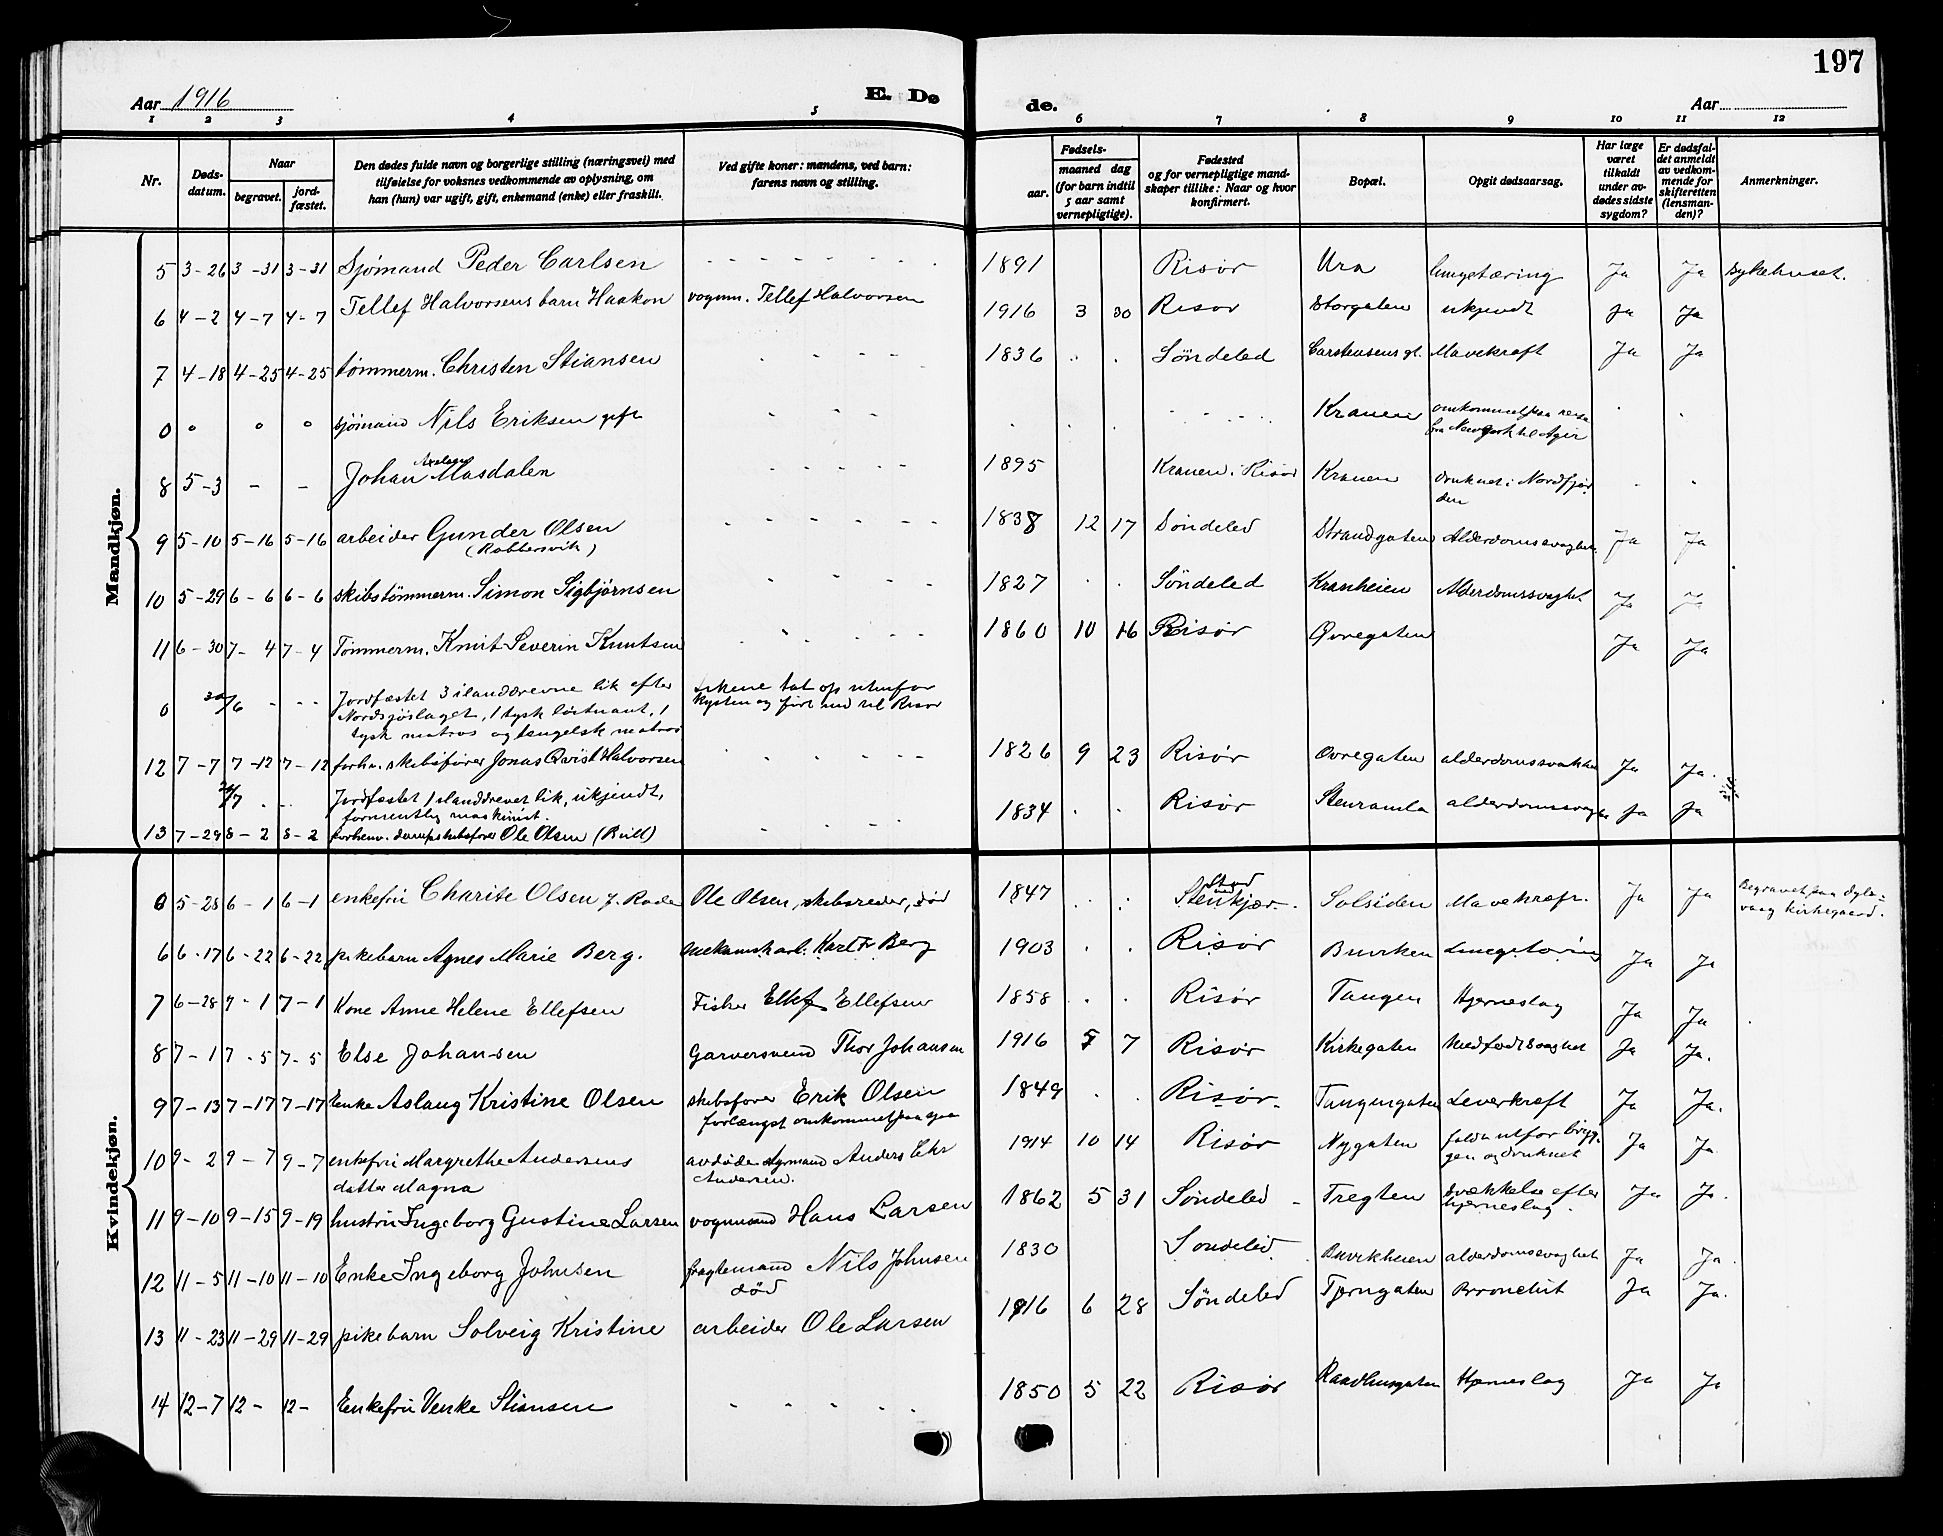 197
Aar 1916
E. Dø
de.
Aar
1 2 3 4 5 6 7 8 9 10 11 12
Nr.
Døds-
datum.
Naar
begravet.
jord-
fæstet.
Den dødes fulde navn og borgerlige stilling (næringsvei) med
tilføielse for voksnes vedkommende av oplysning, om
han (hun) var ugift, gift, enkemand (enke) eller fraskilt.
Ved gifte koner: mandens, ved barn:
farens navn og stilling.
Fødsels-
aar.
maaned dag
(for barn indtil
5 aar samt
vernepligtige).
Fødested
og for vernepligtige mand-
skaper tillike: Naar og hvor
konfirmert.
Bopæl.
Opgit dødsaarsag.
Har læge
været
tilkaldt
under av-
dødes sidste
sygdom?
Er dødsfal-
det anmeldt
av vedkom-
mende for
skifteretten
(lensman-
den)?
Anmerkninger.
Mandkjøn.
5 3-26 3-31 3-31 Sjømand Peder Carlsen 1891 Risør Ura lungetæring Ja Ja Sykehuset.
6 4-2 4-7 4-7 Tellef Halvorsens barn Haakon vognm. Tellef Halvorsen 1916 3 30 Risør Storgaten ukjendt Ja Ja
7 4-18 4-25 4-25 tømmerm. Christen Stiansen 1836 Søndeled Carstensens gt. Mavekræft Ja Ja
0 sjømand Nils Eriksen gift Kranen omkommet paa reise
fra New York til
8 5-3 - - Johan Masdalen 1895 Kranen i Risør Kranen druknet i Nordfjor
den
9 5-10 5-16 5-16 arbeider Gunder Olsen 1838 12 17 Søndeled Strandgaten Alderdomssvaghet Ja Ja
(Robbersvik)
10 5-29 6-6 6-6 skibstømmerm. Simon Sigbjørnsen 1827 Søndeled Kranheien Alderdomssvaghet Ja Ja
11 6-30 7-4 7-4 Tømmerm. Knut Severin Knutsen 1860 10 16 Risør Øvregaten Ja Ja
0 30/6 Jordfæstet 3 ilanddrevne lik efter
Nordsjøslaget, 1 tysk løitnant, 1
tysk matros og 1 engelsk matros
Likene tat op utenfor
kysten og ført ind til Risør
12 7-7 7-12 7-12 forhv. skibsfører Jonas Qvist Halvorsen 1826 9 23 Risør Øvregaten alderdomssvakhet Ja Ja.
Jordfæstet 1 ilanddrevet lik, ukjendt,
formentlig maskinist.
13 7-29 8-2 8-2 forhenv. dampskibsfører Ole Olsen 1834 Risør Stenramla alderdomssvaghet Ja Ja
Kvindekjøn.
5-28 6-1 6-1 enkefru Charite Olsen f. Ole Olsen, skibsreder, død 1847 Stenkjær. Solsiden Mavekræft Ja Ja Begravet paa
kirkegaard.
6 6-17 6-22 6-22 pikebarn Agnes Marie Berg. mekanisk arb. Karl Fr Berg 1903 Risør Buviken Lungetæring Ja Ja
7 6-28 7-1 7-1 Kone Anne Helene Ellefsen Fisker Ellef Ellefsen 1858 Risør Tangen Hjerneslag Ja Ja
8 7-1 7-5 7-5 Else Johansen Garversvend Thor Johansen 1916 7 Risør Kirkegaten Medfødt svaghet Ja Ja.
9 7-13 7-17 7-17 Enke Aslaug Kristine Olsen skibsfører Erik Olsen 1849 Risør. Tangengaten Leverkræft Ja Ja.
forlængst omkommet paa sjøen
10 9-2 9-7 9-7 enkefru Margrethe Andersens avdøde styrmand Anders Chr 1914 10 14 Risør Nygaten faldt utfor bryg-
gen og druknet Ja Ja.
datter Magna
Andersen.
11 9-10 9-15 9-19 hustru Ingeborg Gustine Larsen vognmand Hans Larsen 1862 5 31 Søndeled Tregten Svækkelse efter
hjerneslag. Ja Ja.
12 11-5 11-10 11-10 Enke Ingeborg Johnsen fragtemand Nils Johnsen 1830 Søndeled Buvikheien alderdomssvaghet Ja Ja.
død
13 11-23 11-29 11-29 pikebarn Solveig Kristine arbeider Ole Larsen 1916 6 28 Søndeled Tjerngaten Bronchit Ja Ja.
14 12-7 12- 12- Enkefru Venke Stiansen 1850 5 22 Risør Raadhusgaten Hjerneslag Ja Ja